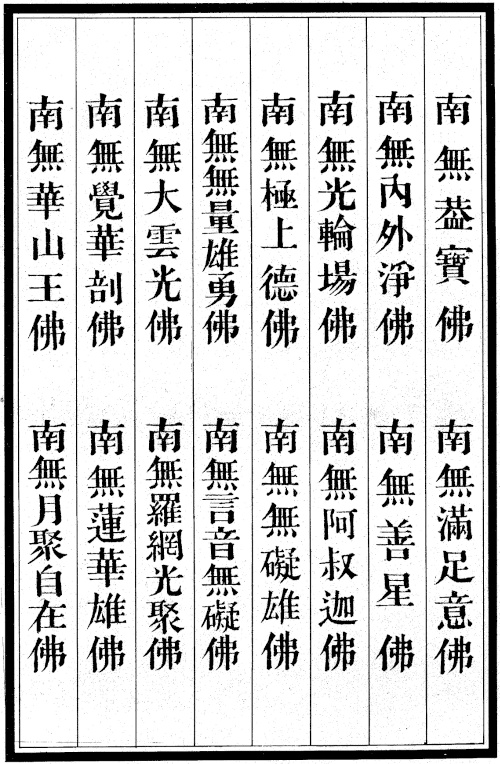 南無葢寶佛　南無滿足意佛
南無內外淨佛　南無善星佛
南無光輪場佛　南無阿叔迦佛
南無極上德佛　南無無礙雄佛
南無無量雄勇佛　南無言音無礙佛
南無大雲光佛　南無羅網光聚佛
南無覺華剖佛　南無蓮華雄佛
南無華山王佛　南無月聚自在佛